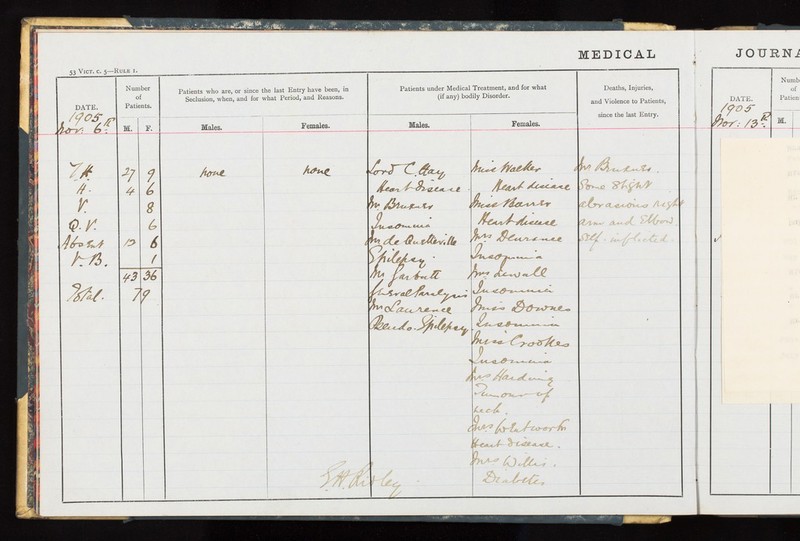 MEDICAL
53 VICT. C. 5—RULE 1.
DATE.
Number of Patients.
M. F.
Patients who are, or since the last Entry have been, in Seclusion, when, and for what Period, and Reasons.
Males. Females.
Patients under Medical Treatment, and for what (if any) bodily Disorder.
Males. Females.
Deaths, Injuries, and Violence to Patients, since the last Entry.
1905
Nov: 6th
27 9
H. 4 6
V. 8
6
Absent 12 6
V.B. 1
43 36
Total. 79
none
none
Lord C. Hay
Heart disease
Insomnia
Epilepsy.
Mr Garbutt
General Paralysis
Mr Laurence
Pseudo-Epilepsy
Miss Walker
Heart disease
Heart disease
Mrs
Insomnia
Mrs
Insomnia
Miss Downes
Insomnia
Miss Crookes
Insomnia
Mrs Harding
Tumour of
neck.
Mrs Wentworth
Heart disease.
Mrs Willis.
Diabetes
Some slight
abrasions right
arm and Elbow.
self-inflicted
JOURNA
DATE.
Numb
of
Patien
M.
1905
Nov: 13th